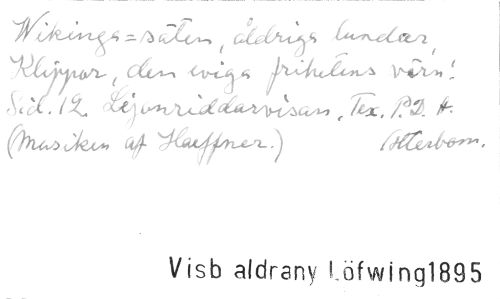 Wikinga=säten, åldriga lundar,
Klippor, den eviga frihetens värn!
Sid. 12. Lejonriddarvisan, Tex. P.D. A.
(Musiken af Hæffner.) Atterbom.
Visb aldrany Löfwing1895